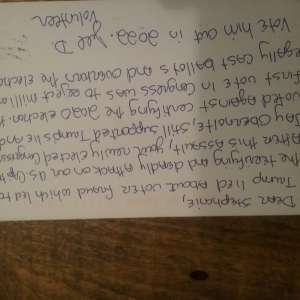 Dear Stephanie,
Trump lied about voter fraud which led to
the terrifying and deadly attack on our US Capit
After this assault, your newly elected Congress
Jay Obernolte, still supported Trump's lie and
voted against certifying the 2020 election
first vote in Congress was to reject million
legally cast ballots and overturn the electio
Vote him out in 2022. D.
Volunteer